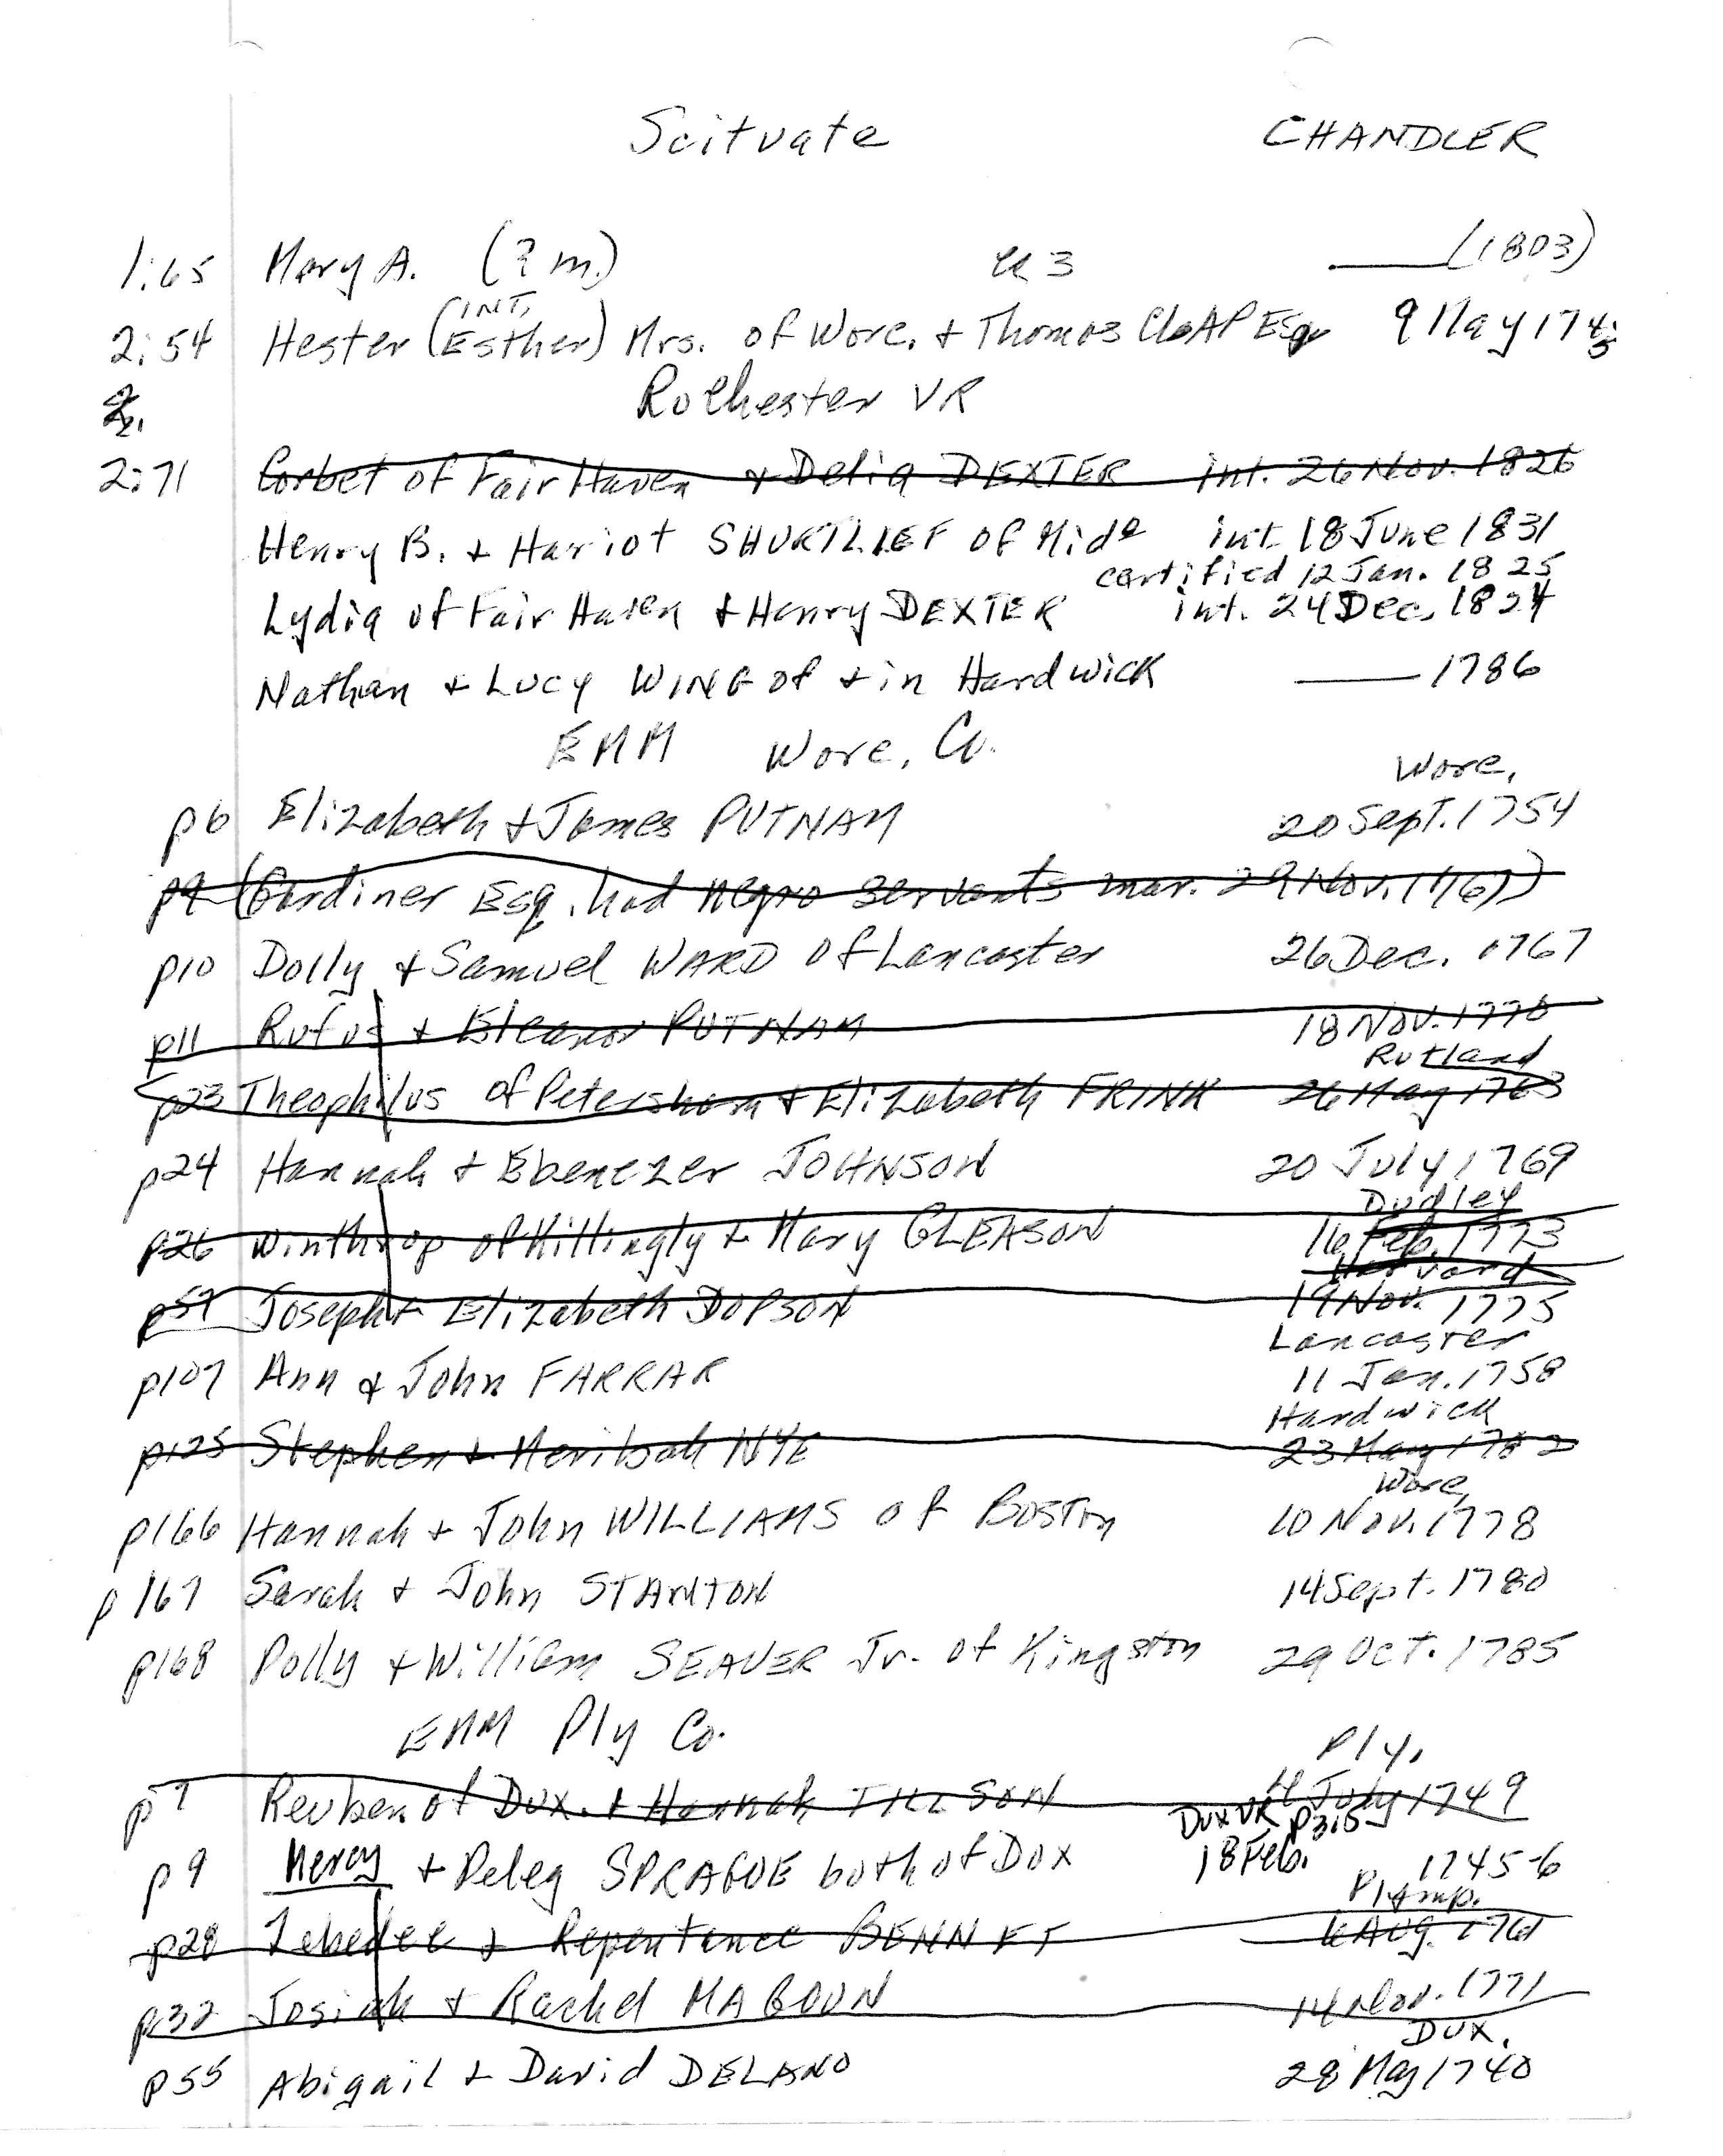 Scituate CHANDLER
1:65 Mary A. (? m.) (1803)
2:54 Hester (Esther) Mrs. of Worc. + Thomas ClAP Esq 9 May 1745
INT,
2.
Rochester VR
2:71 Corbet of Fair Haven + Delia DEXTER int. 26 Nov. 1826
Henry B. + Hariot SHURTLIEF of Midᵉ int 18 June 1831
certified 12 Jan. 1825
Lydia of Fair Haven + Henry DEXTER int. 24 Dec. 1824
Nathan + Lucy WING of + in Hardwick —— 1786
EMM Worc. Co.
Worc.
p6 Elizabeth + James PUTNAM 20 Sept. 1754
p9 (Gardiner Esq. had negro servants mar. 29 Nov. 1767)
p10 Dolly + Samuel WARD of Lancaster 26 Dec. 1767
p11 Rufus + Eleanor PUTNAM 18 Nov. 1770
Rutland
p23 Theophilus of Petersham + Elizabeth FRINK 26 May 1763
p24 Hannah + Ebenezer JOHNSON 20 July 1769
Dudley
p26 Winthrop of Killingly + Mary GLEASON 16 Feb. 1773
Harvard
p59 Joseph + Elizabeth DOPSON 19 Nov. 1775
Lancaster
p107 Ann + John FARRAR 11 Jan. 1758
Hardwick
p125 Stephen + Meribah NYE 23 May 1782
Worc.
p166 Hannah + John WILLIAMS of Boston 10 Nov. 1778
p167 Sarah + John STANTON 14 Sept. 1780
p168 Polly + William SEAVER Jr. of Kingston 29 Oct. 1785
EMM Ply Co.
Ply.
p7 Reuben of Dux. + Hannah TILLSON 4 July 1749
Dux VR p315
p9 Mercy + Peleg SPRAGUE both of Dux 18 Feb. 1745-6
Plymp.
p28 Zebedee + Repentance BENNET 6 Aug. 1761
p32 Josiah + Rachel MAGOUN 14 Nov. 1771
Dux.
p55 Abigail + David DELANO 28 May 1740